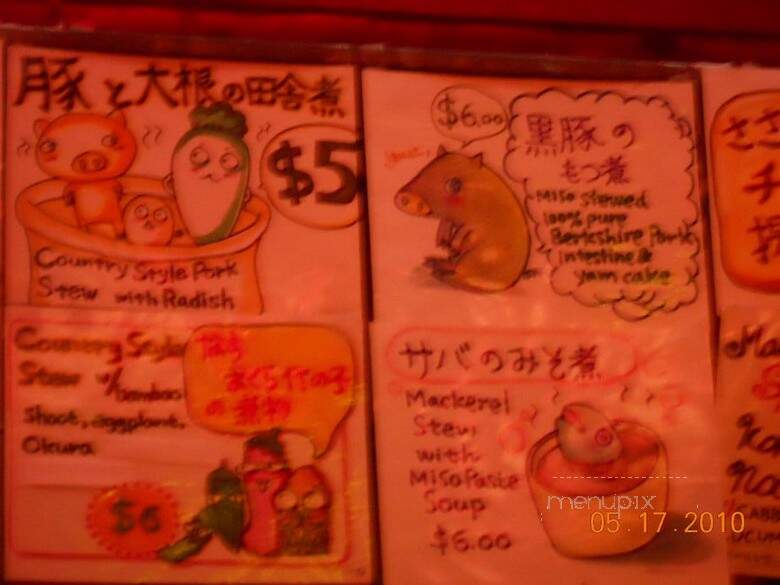 豚と大根の田舎煮
$5
Country Style Pork
Stew with Radish
$6.00
黒豚の
もつ煮
Miso stewed
100% pure
Berkshire Pork
intestine &
yam cake
Country Style
Stew w/bamboo
Shoot, eggplant,
Okura
の煮物
$6
サバのみそ煮
Mackerel
Stew
with
Miso Paste
Soup
$6.00
menupix
05.17.2010